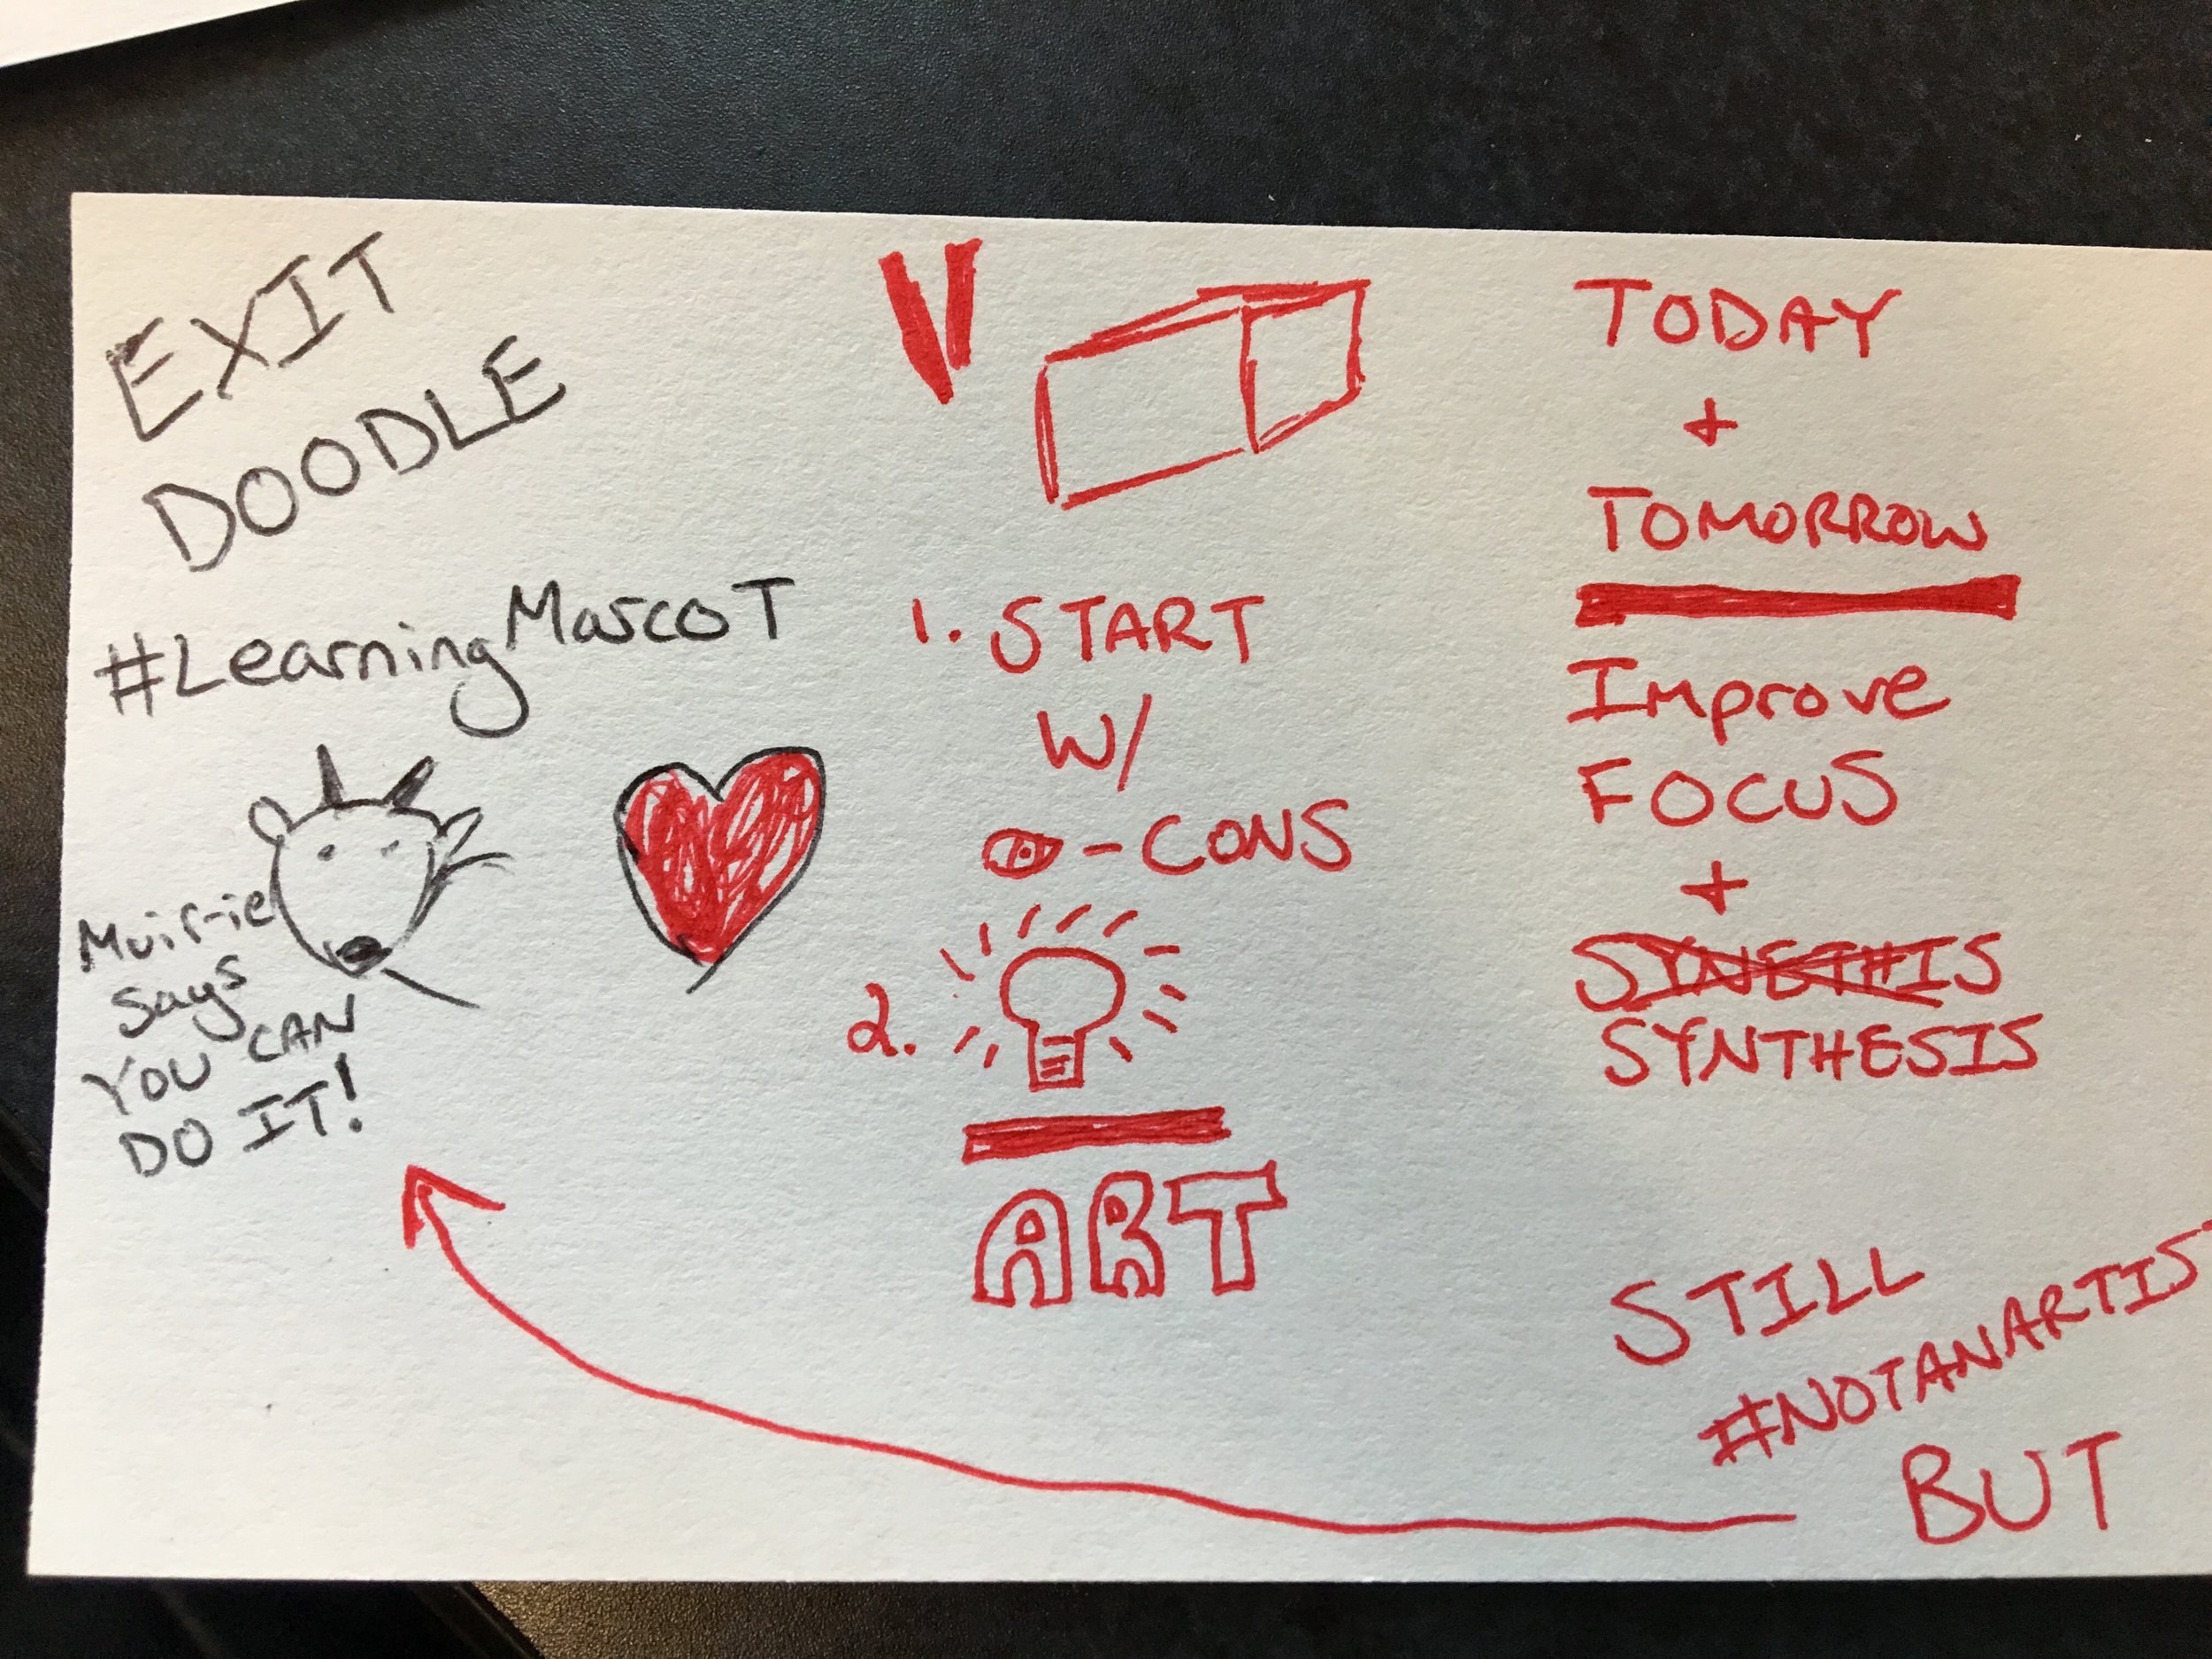 EXIT
DOODLE
#LearningMascoT
Muir-ie
says
YOU CAN
DO IT!
V
1. START
W/
-CONS
2.
ART
TODAY
+
TOMORROW
Improve
FOCUS
+
SYNETHIS
SYNTHESIS
STILL
#NOTANARTIS
BUT